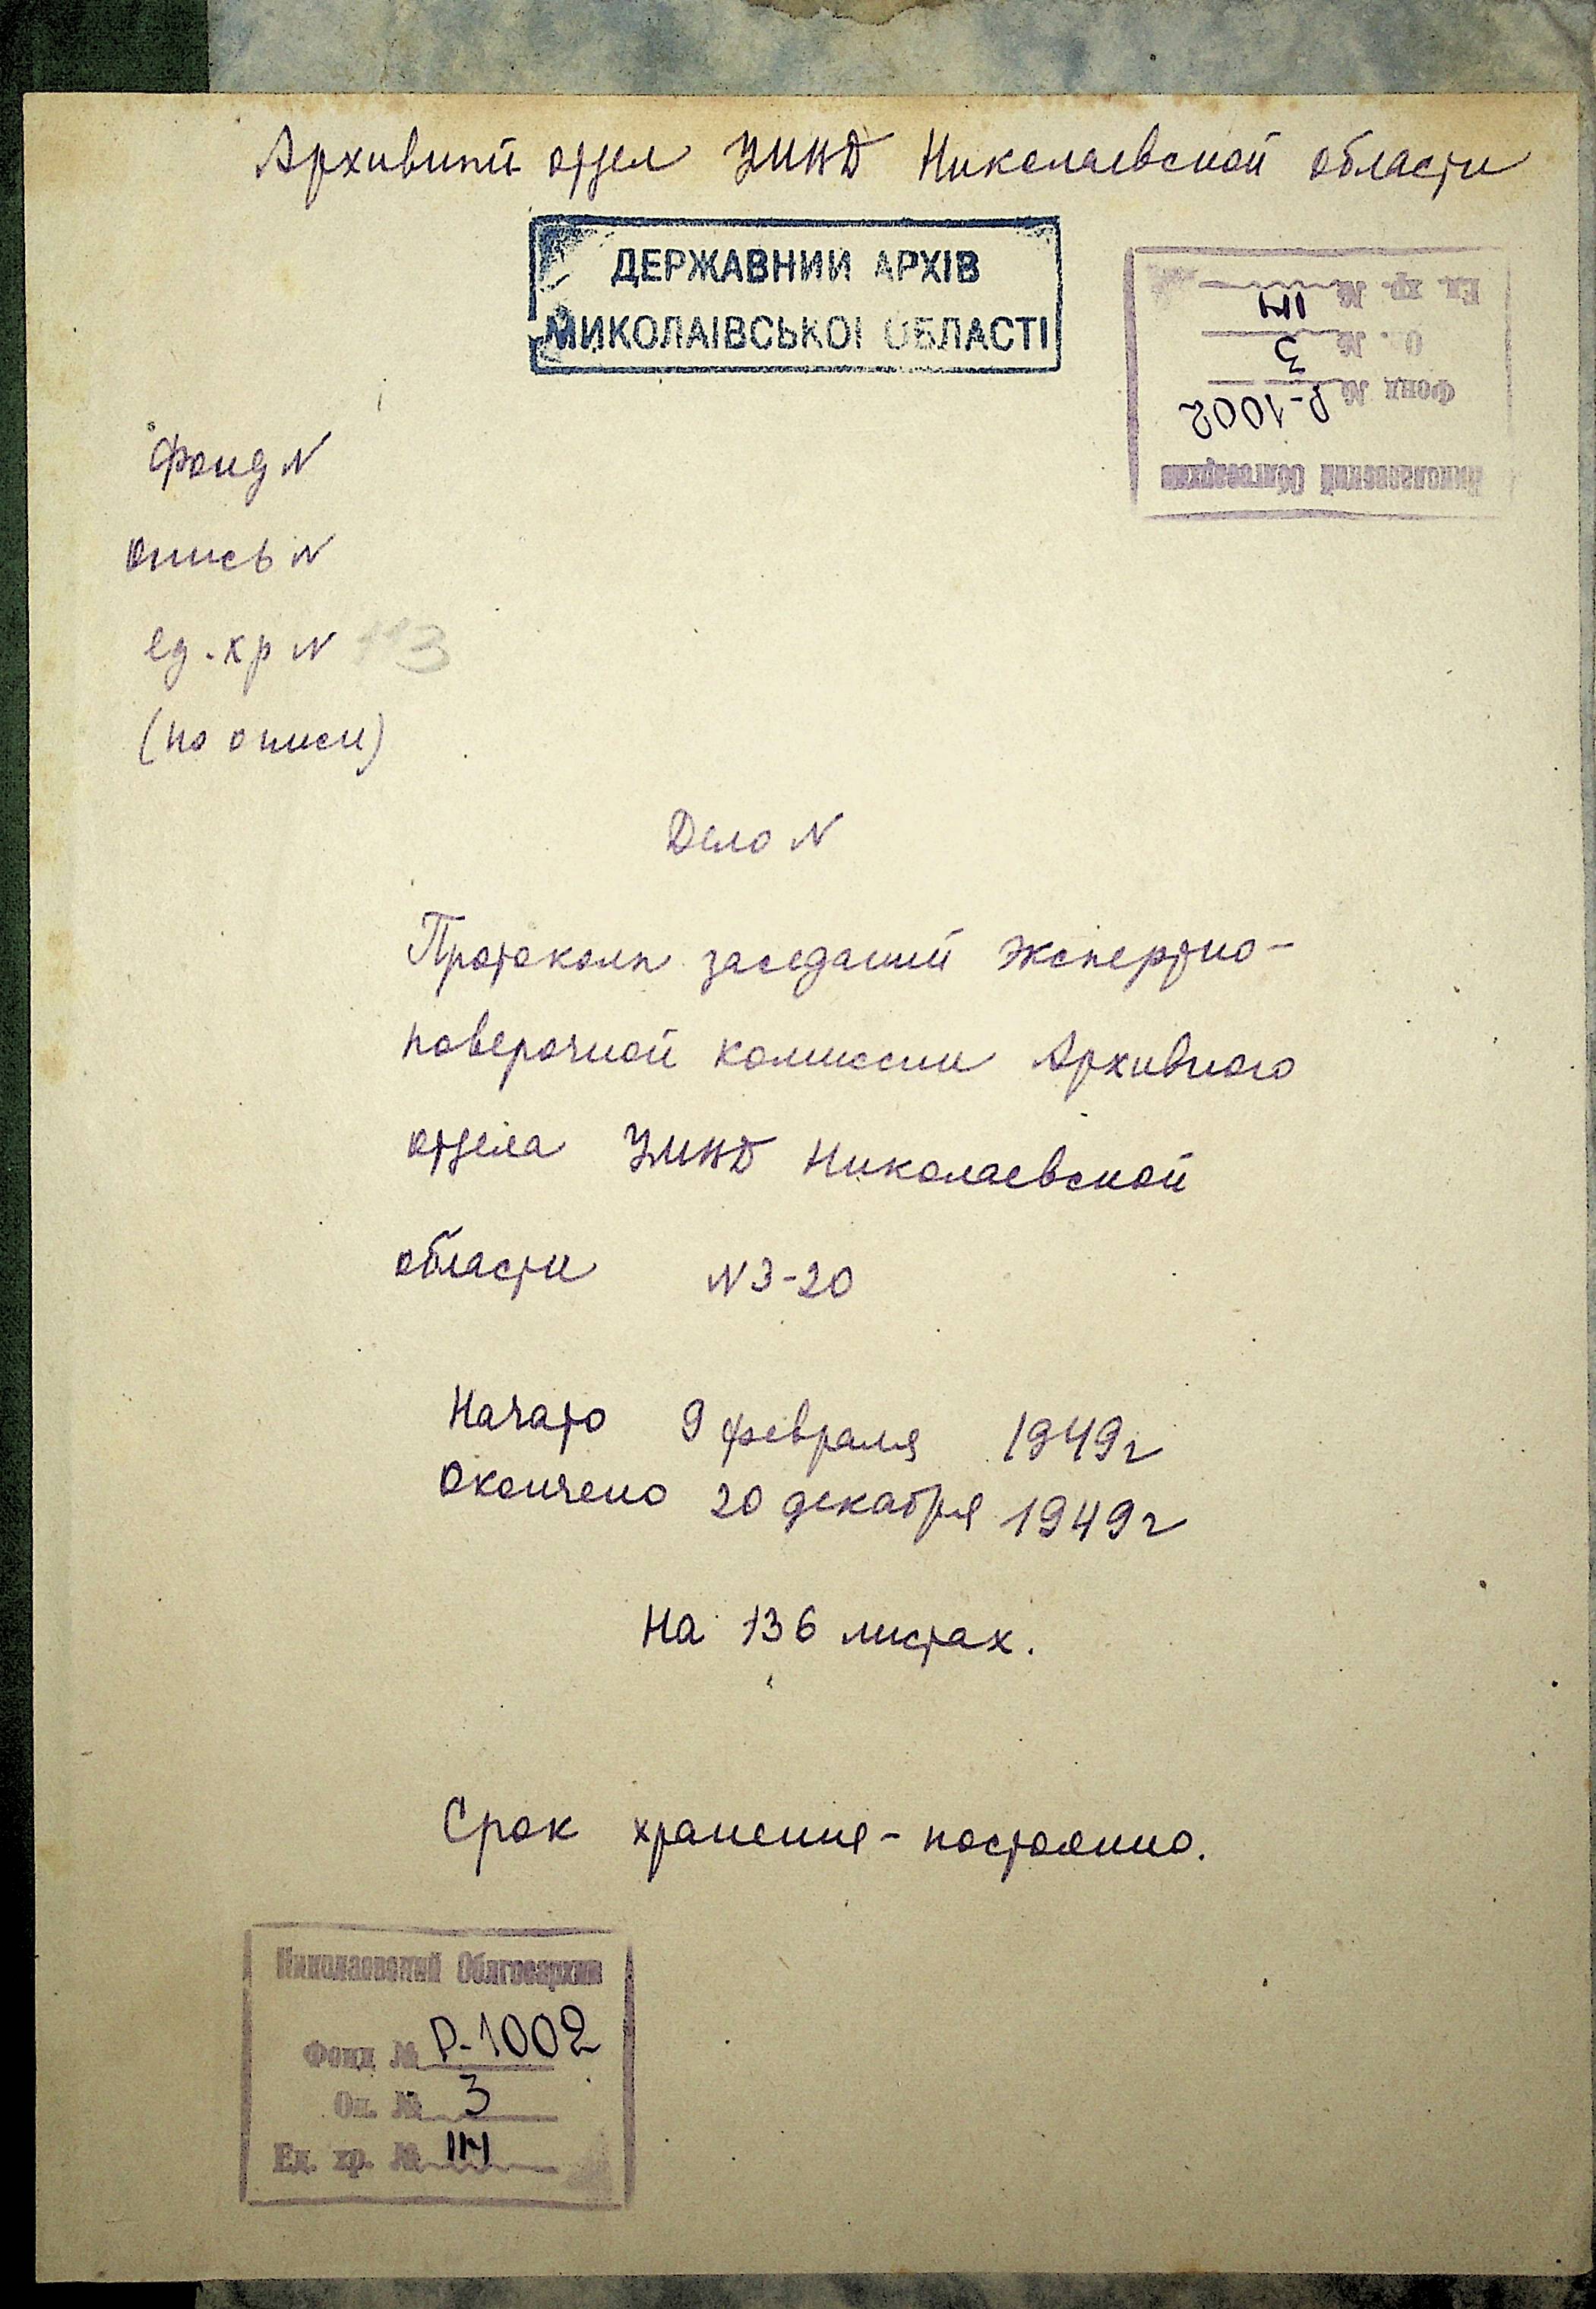 Архивный отдел УМВД Николаевской области
ДЕРЖАВНИЙ АРХІВ
МИКОЛАЇВСЬКОЇ ОБЛАСТІ
Ед. хр. № 114
Оп. № 3
Фонд № Р-1002
Николаевский Облгосархив
Фонд N
Опись N
ед. хр N 113
(по описи)
Дело N
Протоколы заседаний экспертно-
поверочной комиссии Архивного
отдела УМВД Николаевской
области N 3-20
Начато 9 февраля 1949г
Окончено 20 декабря 1949г
На 136 листах.
Срок хранения - постоянно.
Николаевский Облгосархив
Фонд № Р-1002
Оп. № 3
Ед. хр. № 114